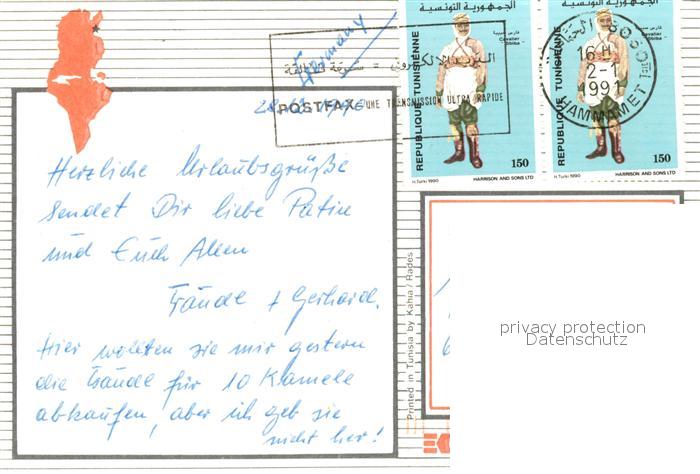 الجمهورية التونسية
الجمهورية التونسية
Cavalier
Sbiba
Cavalier
Sbiba
REPUBLIQUE TUNISIENNE
REPUBLIQUE TUNISIENNE
150
150
H.Turki 1990
HARRISON AND SONS LTD
H.Turki 1990
HARRISON AND SONS LTD
16 H
2-1
1991
HAMMAMET
Germany
البريد الالكتروني =
POSTFAX = UNE TRANSMISSION ULTRA RAPIDE
Herzliche Urlaubsgrüße
sendet Dir liebe Patin
und Euch Allen
Träudle + Gerhard.
Hier wollten sie mir gestern
die Träudle für 10 Kamele
abkaufen, aber ich geb sie
nicht her!
Printed in Tunisia by Kahia / Rades
privacy protection
Datenschutz